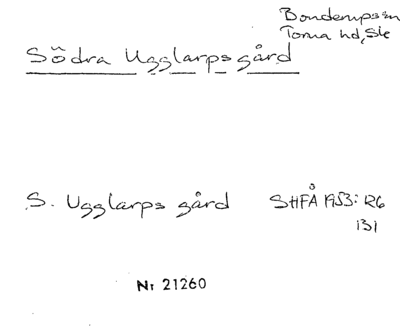 Bonderups sn
Torna hd, Ske
Södra Ugglarps gård
S. Ugglarps gård SHFÅ 1953: R6
131
Nr 21260